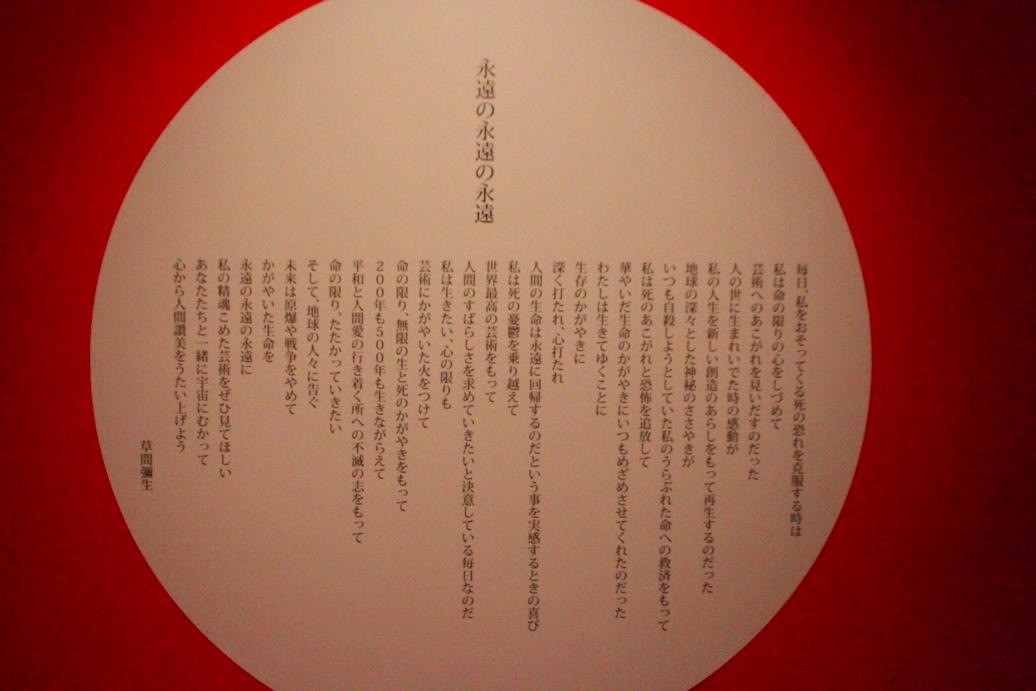 永遠の永遠の永遠
毎日、私をおそってくる死の恐れを克服する時は
私は命の限りの心をしづめて
芸術へのあこがれを見いだすのだった
人の世に生まれいでた時の感動が
私の人生を新しい創造のあらしをもって再生するのだった
地球の深々とした神秘のささやきが
いつも自殺しようとしていた私のうらぶれた命への救済をもって
私は死のあこがれと恐怖を追放して
華やいだ生命のかがやきにいつもめざめさせてくれたのだった
わたしは生きてゆくことに
生存のかがやきに
深く打たれ、心打たれ
人間の生命は永遠に回帰するのだという事を実感するときの喜び
私は死の憂鬱を乗り越えて
世界最高の芸術をもって
人間のすばらしさを求めていきたいと決意している毎日なのだ
私は生きたい、心の限りも
芸術にかがやいた火をつけて
命の限り、無限の生と死のかがやきをもって
200年も500年も生きながらえて
平和と人間愛の行き着く所への不滅の志をもって
命の限り、たたかっていきたい
そして、地球の人々に告ぐ
未来は原爆や戦争をやめて
かがやいた生命を
永遠の永遠の永遠に
私の精魂こめた芸術をぜひ見てほしい
あなたたちと一緒に宇宙にむかって
心から人間讃美をうたい上げよう
草間彌生